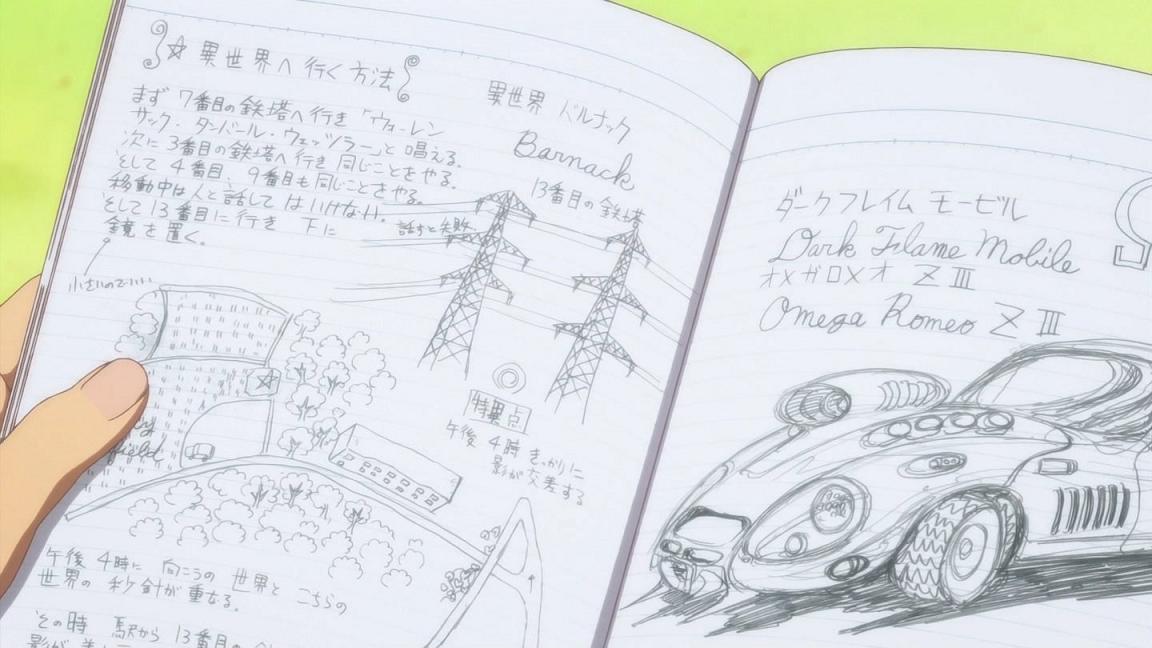 ☆異世界へ行く方法
まず7番目の鉄塔へ行き「ウォーレン
サック・タンバール・ウェッツラー」と唱える。
次に3番目の鉄塔へ行き同じことをやる。
そして4番目、9番目も同じことをやる。
移動中は人と話してはいけない。
話すと失敗
そして13番目に行き 下に
鏡を置く。
小さいので
異世界 バルナック
Barnack
13番目の鉄塔
特異点
午後 4時 きっかりに
影が交差する
field
午後4時に 向こうの 世界と こちらの
世界の 秒針が重なる。
その時 駅から 13番目の
影が
ダークフレイム モービル
Dark Flame Mobile
オメガロメオ ZIII
Omega Romeo ZIII